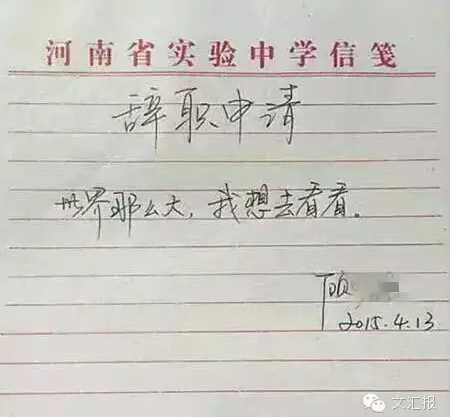 河南省实验中学信笺
辞职申请
世界那么大，我想去看看。
顾
2015.4.13
文汇报